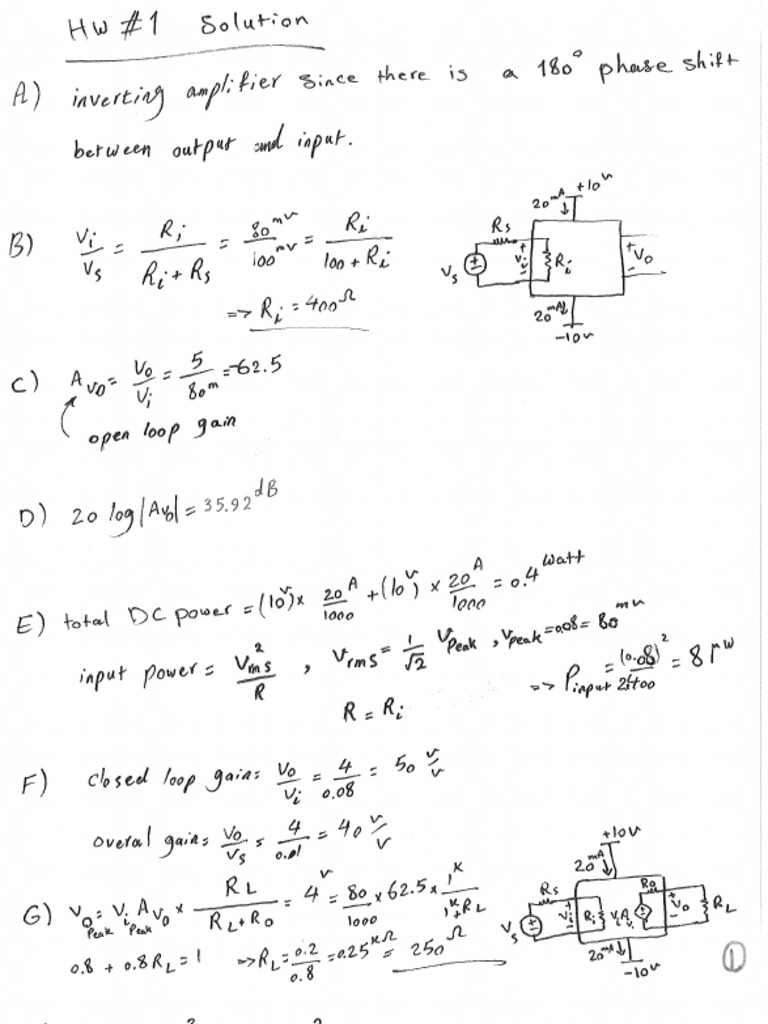 HW #1 Solution
A) inverting amplifier since there is a 180° phase shift
between output and input.
B) Vi/Vs = Ri/(Ri + Rs) = 80mv/100mv = Ri/(100 + Ri)
=> Ri = 400Ω
Rs
Vs
+ Vi -
Ri
20mA
+10v
+ Vo -
20mA
-10v
C) Avo = Vo/Vi = 5/80m = -62.5
open loop gain
D) 20 log|Avo| = 35.92 dB
E) total DC power = (10v) x 20A/1000 + (10v) x 20A/1000 = 0.4 Watt
input power = Vrms²/R , Vrms = 1/√2 Vpeak , Vpeak = 0.08 = 80mv
R = Ri
=> Pinput = (0.08)²/2*400 = 8 μW
F) Closed loop gain: Vo/Vi = 4/0.08 = 50 v/v
overal gain: Vo/Vs = 4/0.01 = 40 v/v
G) Vo Peak = Vi Peak Avo x RL/(RL + Ro) = 4v = 80/1000 x 62.5 x 1K/(1K + RL)
0.8 + 0.8RL = 1 => RL = 0.2/0.8 = 0.25KΩ = 250Ω
Rs
Vs
Vi
Ri
ViAv
Ro
+ Vo -
RL
20mA
+10v
20mA
-10v
1